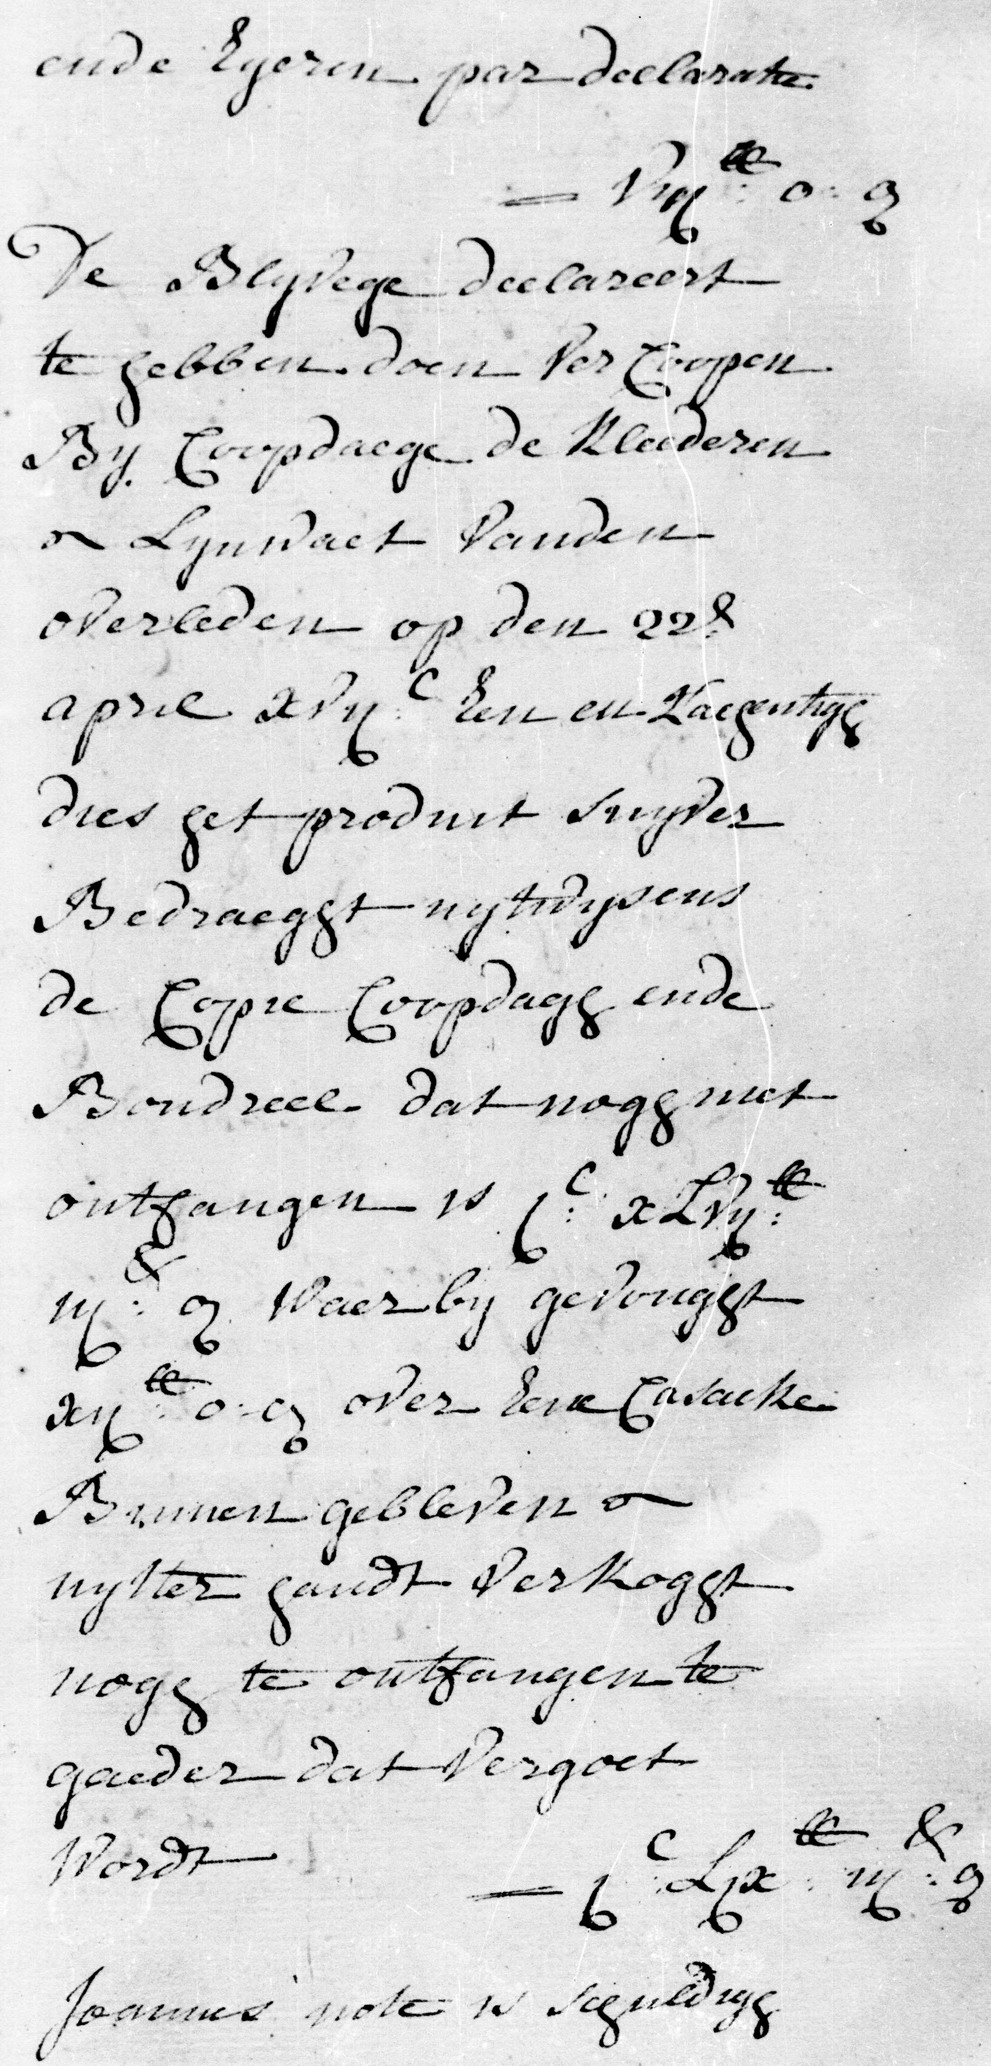 ende Eyeren par declarate
— vij lb: o: g
De Blyvege declareert
te hebben doen ver Coopen
By Coopdaege de Kleederen
en Lynwaet vanden
overleden op den 22e
april xvij:c Een en Naegentigh
dies het produit suyver
Bedraeght uytwysens
de Copie Coopdagh ende
Bondreel dat nogh niet
ontfangen is j:c xLvij: lb
iij: ß g waer by gevought
xij: lb o: g over Eene Casacke
Binnen gebleven en
uytter handt verkoght
nogh te ontfangen te
gaeder dat vergoet
wordt — j:c Lix: lb iij: ß g
Joannes note is schuldigh